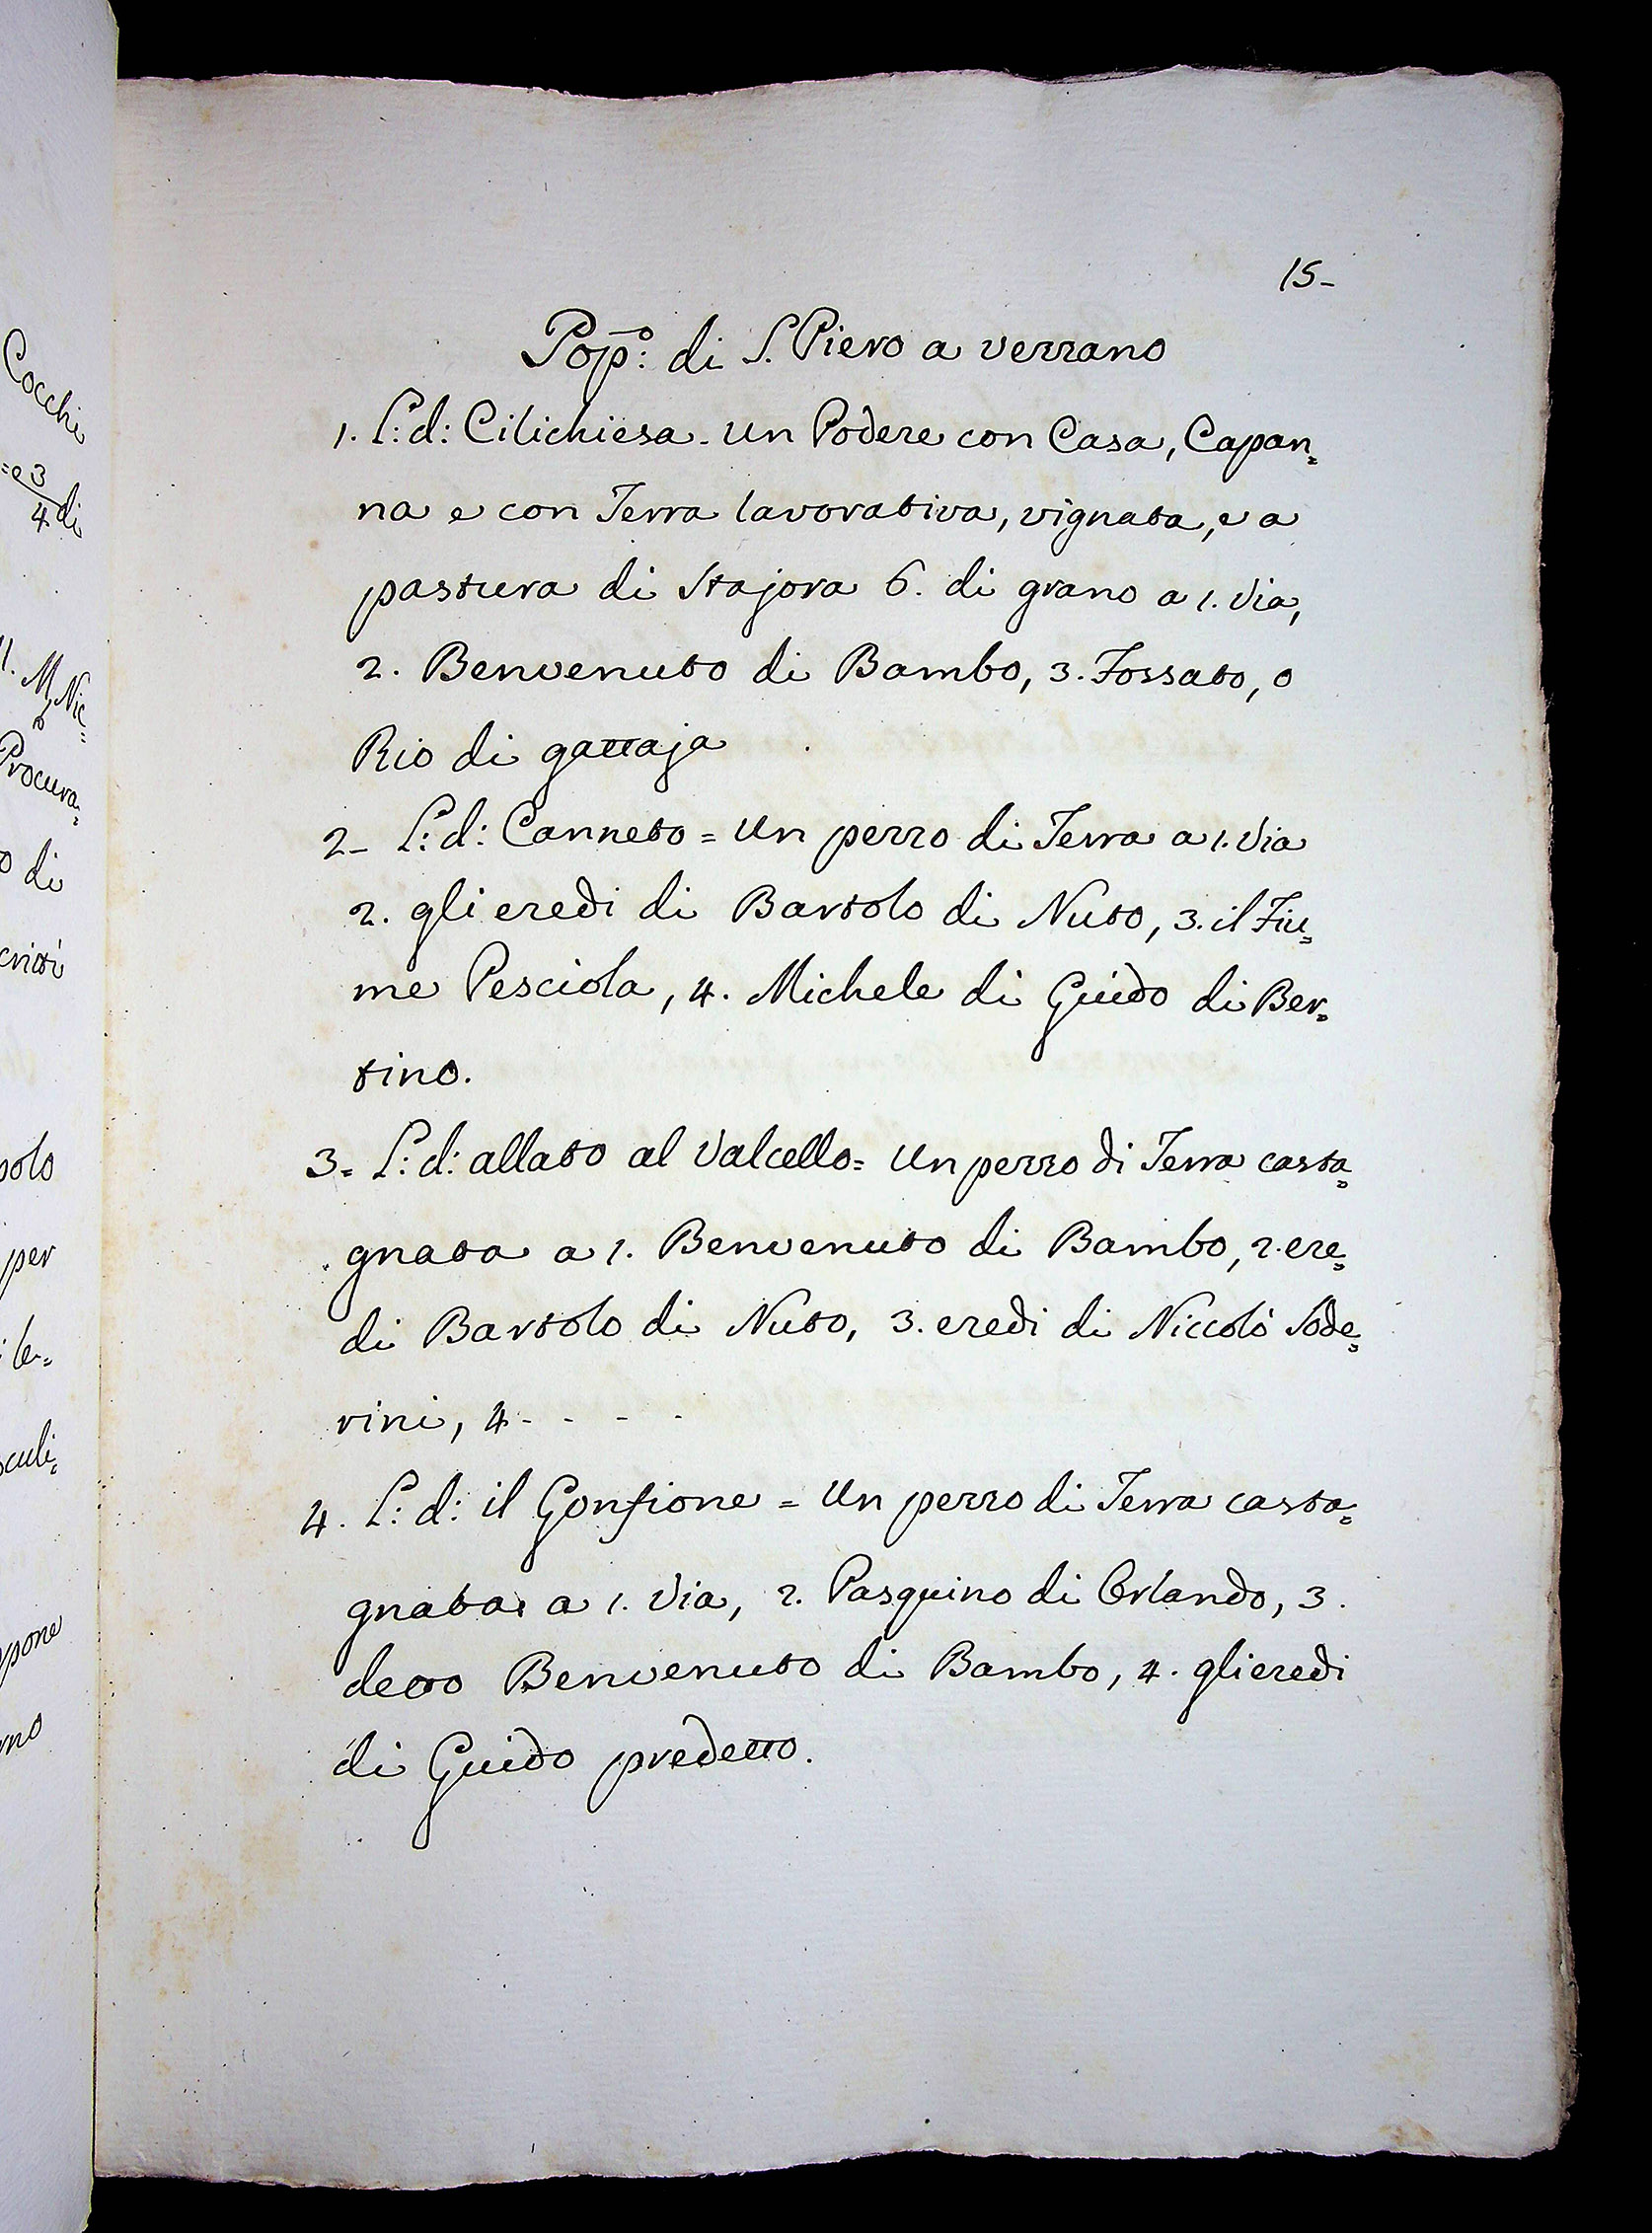 Cocchi
= e 3/4 di
Procura=
di
per
15-
Pop:º di S. Piero a vezzano
1. L: d: Cilichiesa - un Podere con Casa, Capan=
na e con Terra lavorativa, vignata, e a
pastura di Stajora 6. di grano a 1. Via,
2. Benvenuto di Bambo, 3. Fossato, o
Rio di gattaja
2- L: d: Canneto = un pezzo di Terra a 1. Via
2. gli eredi di Bartolo di Nuto, 3. il Fiu=
me Pesciola, 4. Michele di Guido di Ber=
tino.
3= L: d: allato al Valcello = Un pezzo di Terra casta=
gnata a 1. Benvenuto di Bambo, 2. ere=
di Bartolo di Nuto, 3. eredi di Niccolò Sode=
rini, 4 - - - -
4. L: d: il Gonfione = Un pezzo di Terra casta=
gnata a 1. Via, 2. Pasquino di Orlando, 3.
detto Benvenuto di Bambo, 4. gli eredi
di Guido predetto.